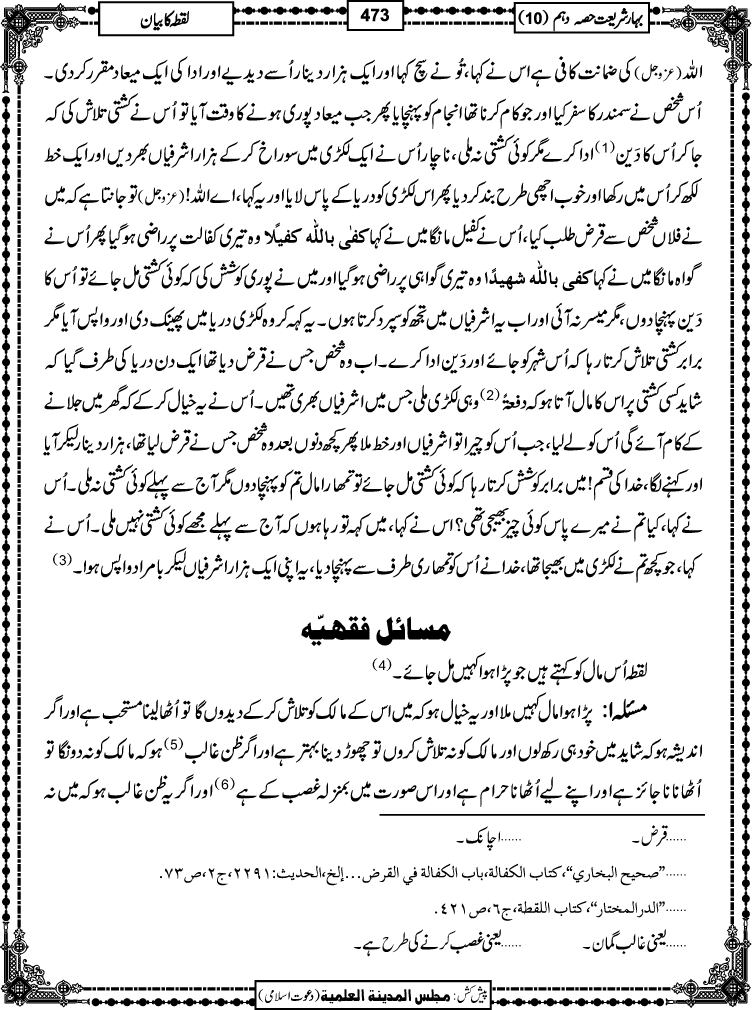 بہارشریعت حصہ دہم (10)
473
لقطہ کا بیان
اللہ (عزوجل) کی ضمانت کافی ہے اس نے کہا، تُو نے سچ کہا اور ایک ہزار دینار اُسے دیدیے اور ادا کی ایک میعاد مقرر کردی۔
اُس شخص نے سمندر کا سفر کیا اور جو کام کرنا تھا انجام کو پہنچایا پھر جب میعاد پوری ہونے کا وقت آیا تو اُس نے کشتی تلاش کی کہ
جا کر اُس کا دَین (1) ادا کرے مگر کوئی کشتی نہ ملی، ناچار اُس نے ایک لکڑی میں سوراخ کر کے ہزار اشرفیاں بھر دیں اور ایک خط
لکھ کر اُس میں رکھا اور خوب اچھی طرح بند کر دیا پھر اس لکڑی کو دریا کے پاس لایا اور یہ کہا، اے اللہ! (عزوجل) تو جانتا ہے کہ میں
نے فلاں شخص سے قرض طلب کیا، اُس نے کفیل مانگا میں نے کہا کفٰی باللّٰہ کفیلًا وہ تیری کفالت پر راضی ہو گیا پھر اُس نے
گواہ مانگا میں نے کہا کفی باللّٰہ شھیدًا وہ تیری گواہی پر راضی ہو گیا اور میں نے پوری کوشش کی کہ کوئی کشتی مل جائے تو اُس کا
دَین پہنچا دوں، مگر میسر نہ آئی اور اب یہ اشرفیاں میں تجھ کو سپرد کرتا ہوں۔ یہ کہہ کر وہ لکڑی دریا میں پھینک دی اور واپس آیا مگر
برابر کشتی تلاش کرتا رہا کہ اُس شہر کو جائے اور دَین ادا کرے۔ اب وہ شخص جس نے قرض دیا تھا ایک دن دریا کی طرف گیا کہ
شاید کسی کشتی پر اس کا مال آتا ہو کہ دفعۃً (2) وہی لکڑی ملی جس میں اشرفیاں بھری تھیں۔ اُس نے یہ خیال کر کے کہ گھر میں جلانے
کے کام آئے گی اُس کو لے لیا، جب اُس کو چیرا تو اشرفیاں اور خط ملا پھر کچھ دنوں بعد وہ شخص جس نے قرض لیا تھا، ہزار دینار لیکر آیا
اور کہنے لگا، خدا کی قسم! میں برابر کوشش کرتا رہا کہ کوئی کشتی مل جائے تو تمھارا مال تم کو پہنچا دوں مگر آج سے پہلے کوئی کشتی نہ ملی۔ اُس
نے کہا، کیا تم نے میرے پاس کوئی چیز بھیجی تھی؟ اس نے کہا، میں کہہ تو رہا ہوں کہ آج سے پہلے مجھے کوئی کشتی نہیں ملی۔ اُس نے
کہا، جو کچھ تم نے لکڑی میں بھیجا تھا، خدا نے اُس کو تمھاری طرف سے پہنچا دیا، یہ اپنی ایک ہزار اشرفیاں لیکر بامراد واپس ہوا۔ (3)
مسائل فقھیّہ
لقطہ اُس مال کو کہتے ہیں جو پڑا ہوا کہیں مل جائے۔ (4)
مسئلہ ۱: پڑا ہوا مال کہیں ملا اور یہ خیال ہو کہ میں اس کے مالک کو تلاش کر کے دیدوں گا تو اُٹھا لینا مستحب ہے اور اگر
اندیشہ ہو کہ شاید میں خود ہی رکھ لوں اور مالک کو نہ تلاش کروں تو چھوڑ دینا بہتر ہے اور اگر ظن غالب (5) ہو کہ مالک کو نہ دونگا تو
اُٹھانا ناجائز ہے اور اپنے لیے اُٹھانا حرام ہے اور اس صورت میں بمنزلہ غصب کے ہے (6) اور اگر یہ ظن غالب ہو کہ میں نہ
......قرض۔ ......اچانک۔
......”صحیح البخاري“، کتاب الکفالة، باب الکفالة في القرض...إلخ، الحدیث: ٢٢٩١، ج٢، ص٧٣.
......”الدرالمختار“، کتاب اللقطة، ج٦، ص٤٢١.
......یعنی غالب گمان۔ ......یعنی غصب کرنے کی طرح ہے۔
پیش کش: مجلس المدینة العلمیة (دعوت اسلامی)